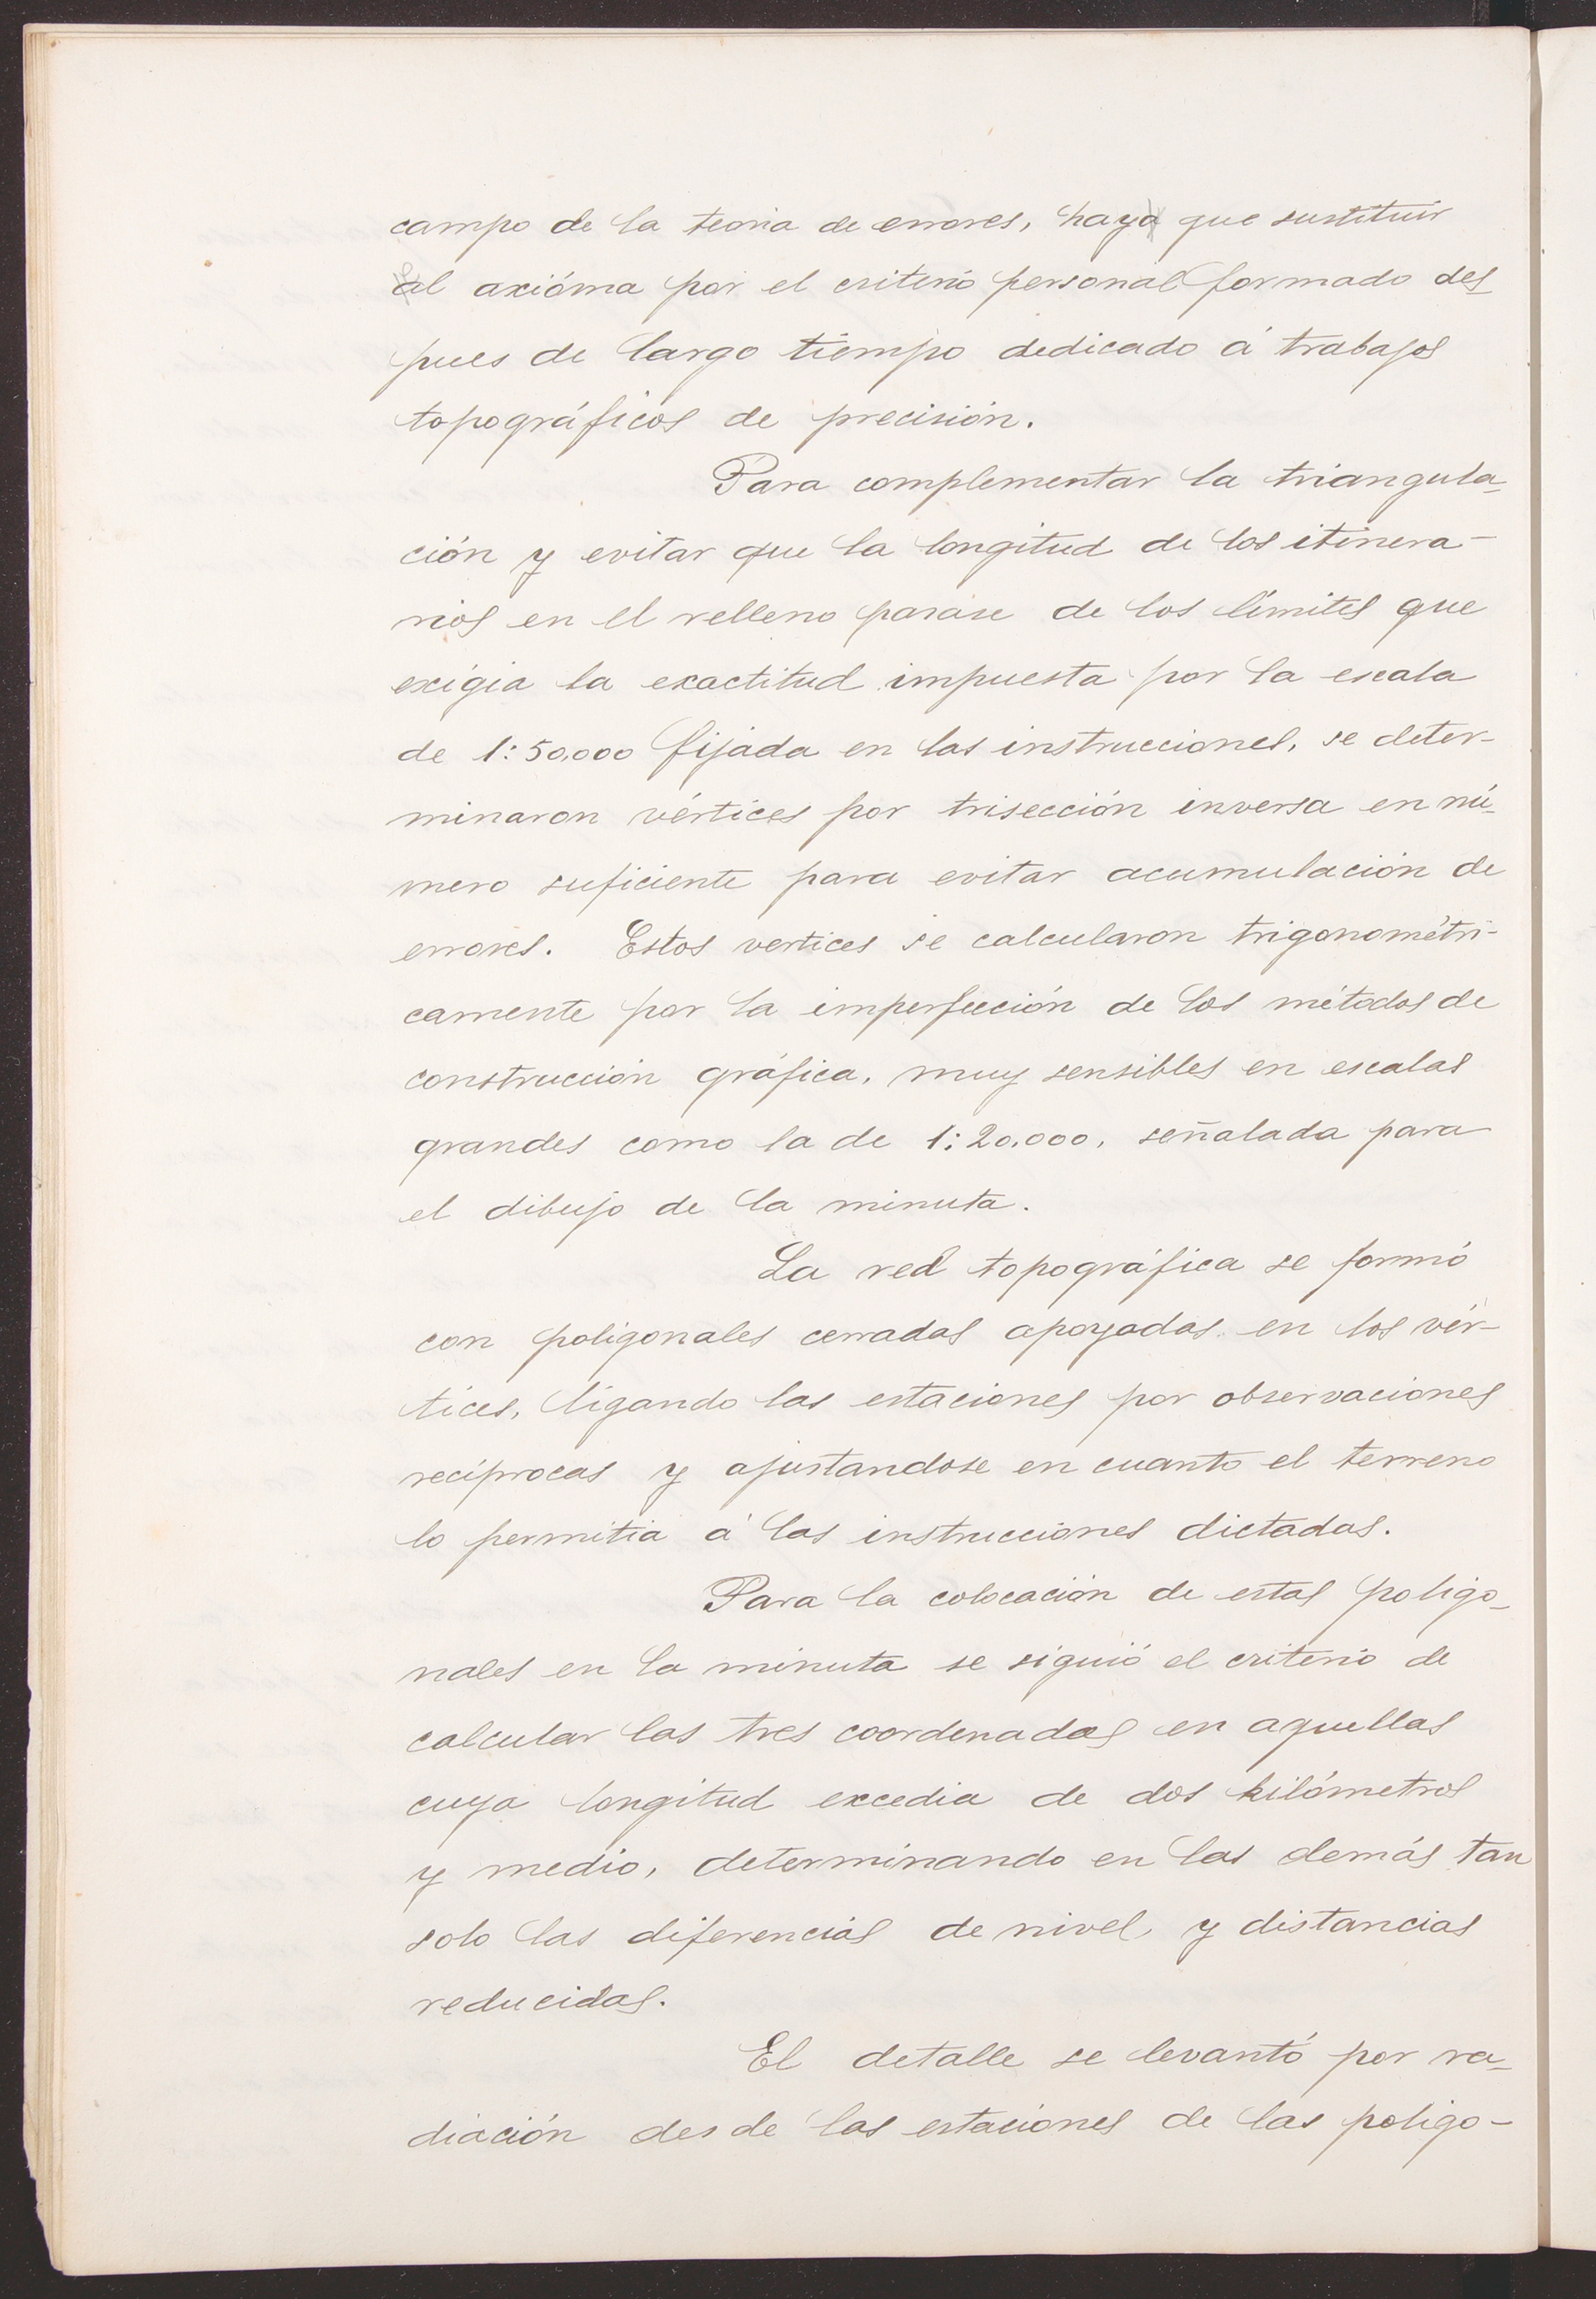 campo de la teoria de errores, hay que sustituir
el axióma por el criterio personal formado des_
pues de largo tiempo dedicado á trabajos
topográficos de precisión.
Para complementar la triangula_
ción y evitar que la longitud de los itinera-
rios en el relleno pasase de los límites que
exigia la exactitud impuesta por la escala
de 1:50.000 fijada en las instrucciones, se deter-
minaron vértices por trisección inversa en nú_
mero suficiente para evitar acumulación de
errores. Estos vertices se calcularon trigonométri-
camente por la imperfección de los métodos de
construcción gráfica, muy sensibles en escalas
grandes como la de 1:20.000, señalada para
el dibujo de la minuta.
La red topográfica se formó
con poligonales cerradas apoyadas en los vér-
tices, ligando las estaciones por observaciones
recíprocas y ajustandose en cuanto el terreno
lo permitia á las instrucciones dictadas.
Para la colocación de estas poligo_
nales en la minuta se siguió el criterio de
calcular las tres coordenadas en aquellas
cuya longitud excedia de dos kilómetros
y medio, determinando en las demás tan
solo las diferencias de nivel, y distancias
reducidas.
El detalle se levantó por ra_
diación desde las estaciones de las poligo-